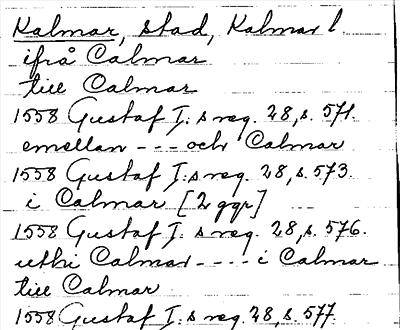 Kalmar, stad, Kalmar l
ifrå Calmar
till Calmar
1558 Gustaf I:s reg. 28, s. 571.
emellan --- och Calmar
1558 Gustaf I:s reg. 28, s. 573.
i Calmar [2 ggr]
1558 Gustaf I:s reg. 28, s. 576.
uthi Calmar ---- i Calmar
till Calmar
1558 Gustaf I:s reg. 28, s. 577